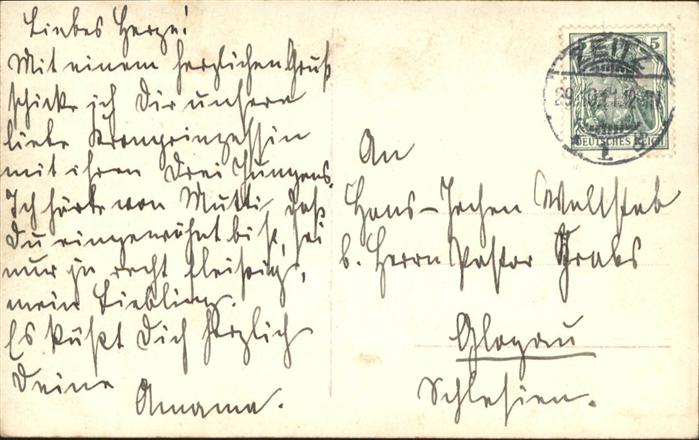 Liebes Herze!
Mit einem herzlichen Gruß
schicke ich Dir unsere
liebe Kronprinzessin
mit ihren drei Jungens.
Ich hörte von Mutti, daß
Du eingewöhnt bist, sei
nur ja recht fleißig,
mein Liebling.
Es küßt Dich herzlich
Deine
Amama.
5
ZEITZ
29.10.11.
1
DEUTSCHES REICH
An
Hans-Jochen
b. Herrn Pastor
Glogau
Schlesien.